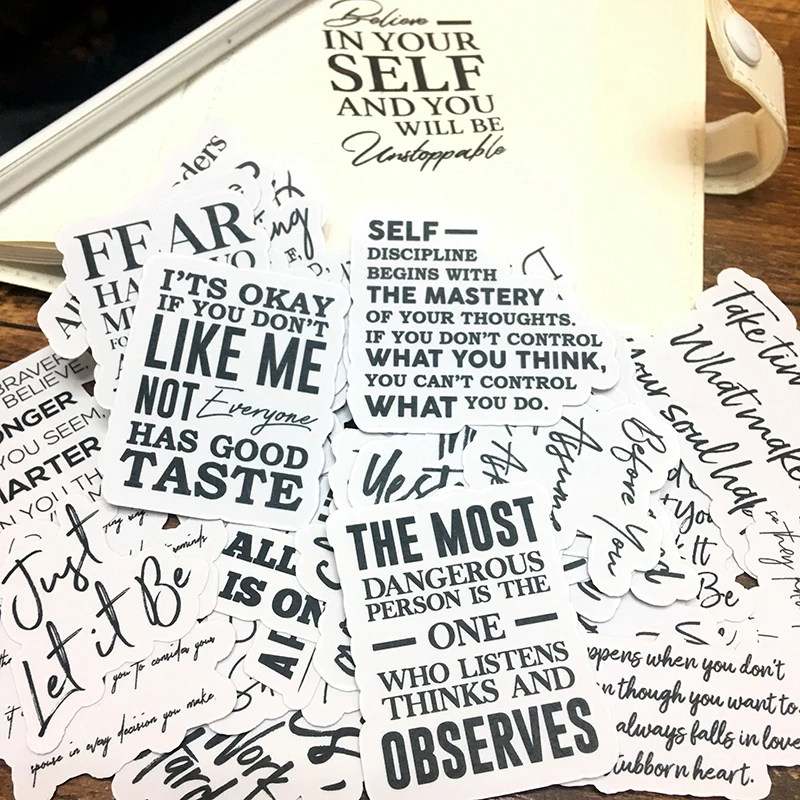 Believe
IN YOUR
SELF
AND YOU
WILL BE
Unstoppable
FEAR
SELF —
DISCIPLINE
BEGINS WITH
THE MASTERY
OF YOUR THOUGHTS.
IF YOU DON'T CONTROL
WHAT YOU THINK,
YOU CAN'T CONTROL
WHAT YOU DO.
I'TS OKAY
IF YOU DON'T
LIKE ME
NOT Everyone
HAS GOOD
TASTE
BELIEVE,
YOU SEEM,
Take
What
your soul
Before You
Assume
THE MOST
DANGEROUS
PERSON IS THE
— ONE —
WHO LISTENS
THINKS AND
OBSERVES
Just
Let it Be
ALL
IS ON
reminds
you to consider your
spouse in every decision you make.
Work
when you don't
though you want to
always falls in love
heart.